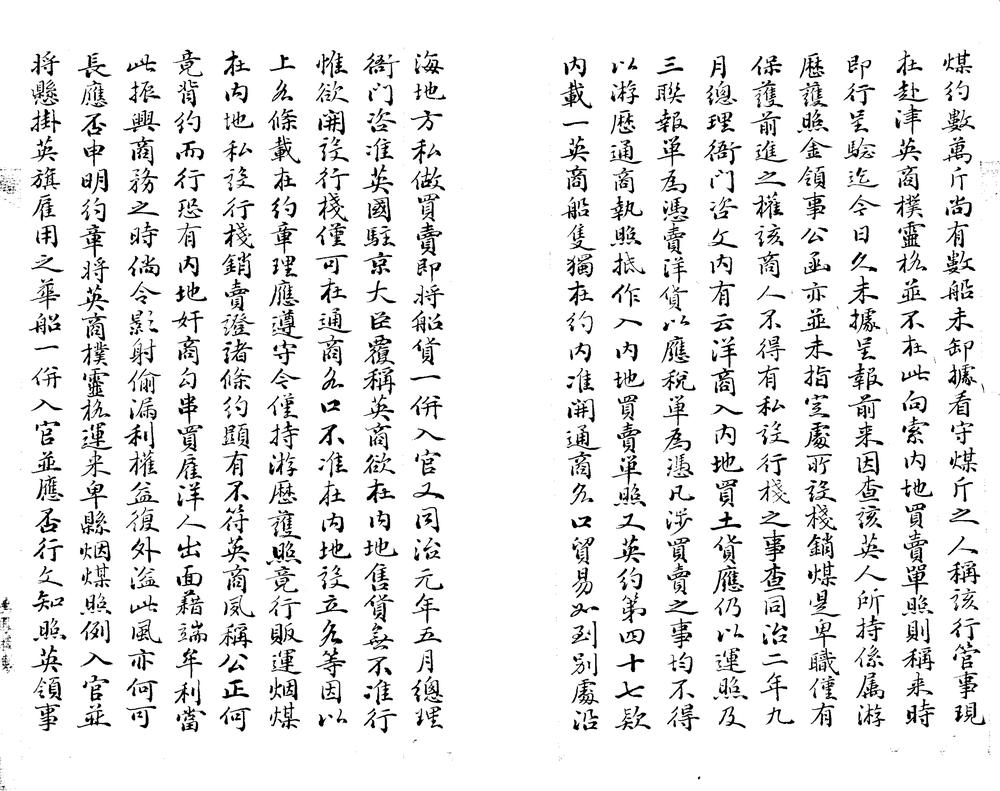 煤約數萬斤尚有數船未卸據看守煤斤之人稱該行管事現
在赴津英商樸靈格並不在此向索內地買賣單照則稱来時
即行呈驗迄今日久未據呈報前来因查該英人所持係属游
歴護照金領事公函亦並未指定處所設棧銷煤是卑職僅有
保護前進之權該商人不得有私設行棧之事查同治二年九
月總理衙门咨文内有云洋商入內地買土貨應仍以運照及
三聯報单為憑賣洋貨以應税单為憑凡涉買賣之事均不得
以游歴通商執照抵作入內地買賣单照又英約第四十七欵
内載一英商船隻獨在約内准開通商各口貿易如到别處沿
海地方私做買賣即將船貨一併入官又同治元年五月總理
衙门咨准英國駐京大臣覆稱英商欲在内地售貨無不准行
惟欲開設行棧僅可在通商各口不准在内地設立各等因以
上各條載在約章理應遵守今僅持游歴護照竟行販運烟煤
在内地私設行棧銷賣證諸條約顯有不符英商夙稱公正何
竟背約而行恐有内地奸商勾串買雇洋人出面藉端牟利當
此振興商務之時倘令影射偷漏利權益復外溢此風亦何可
長應否申明約章將英商樸靈格運来卑縣烟煤照例入官並
將懸掛英旗雇用之華船一併入官並應否行文知照英領事